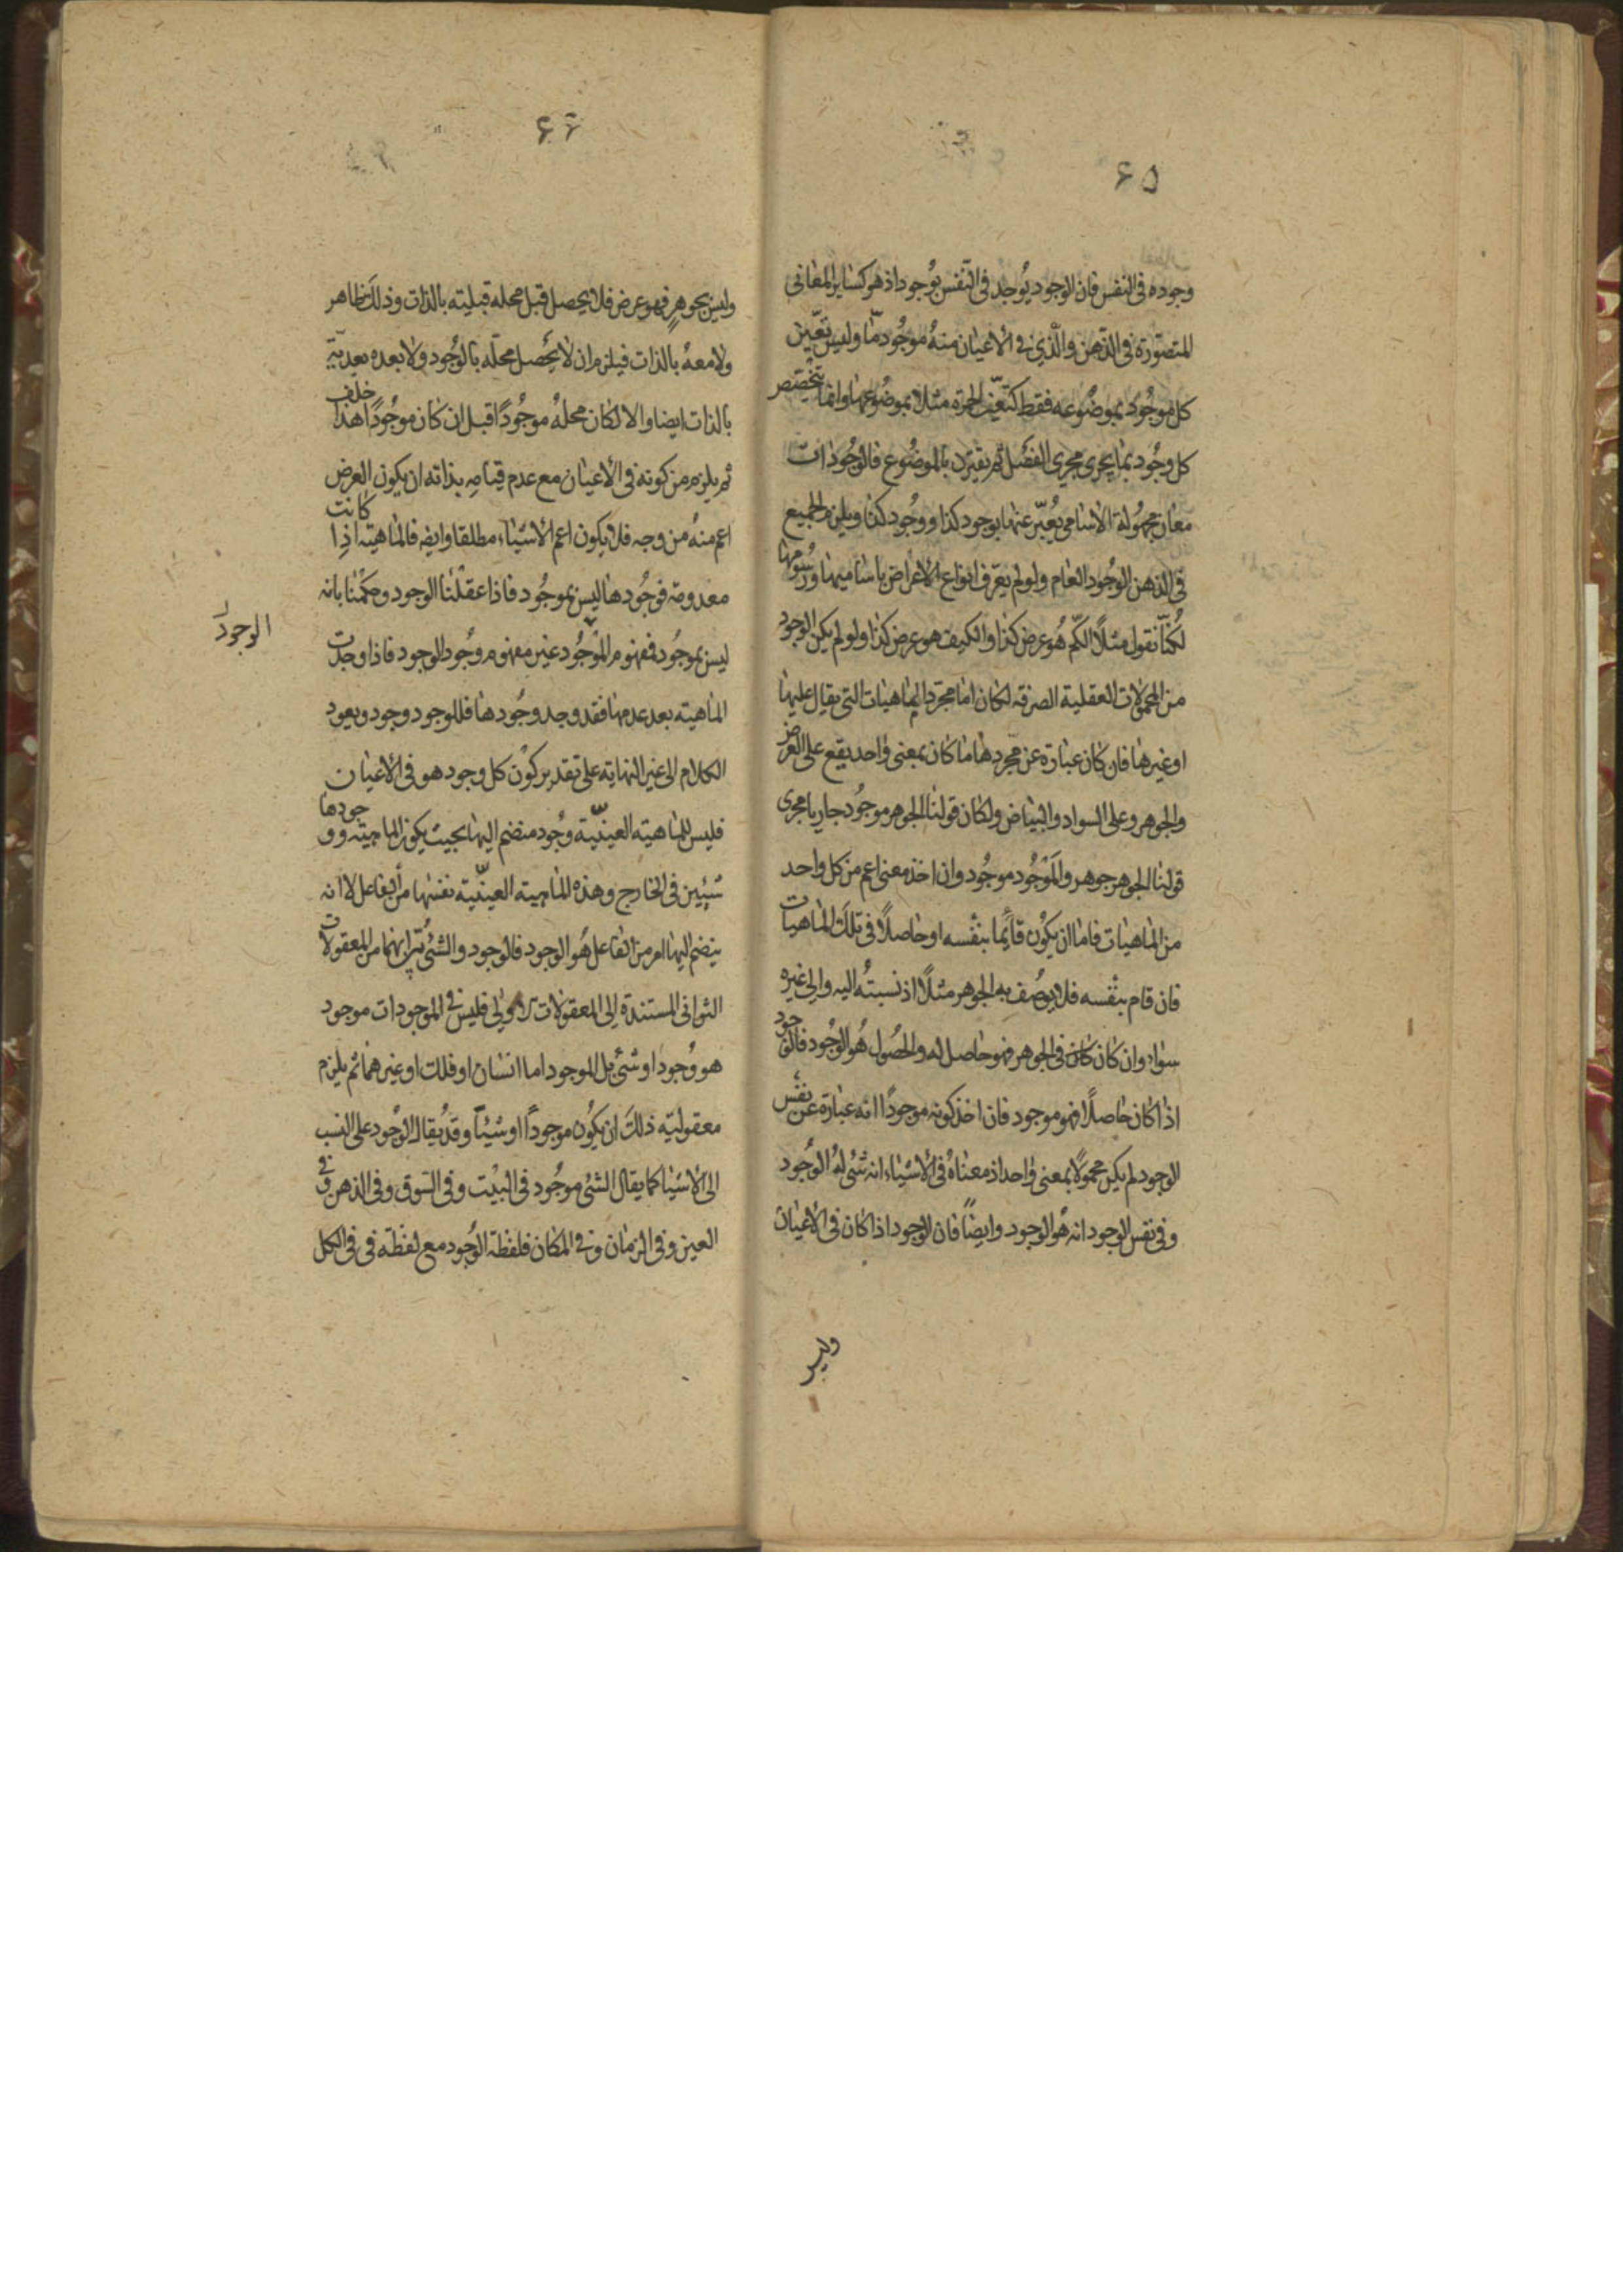 ٦٥
وجوده فى النفس فان الوجود يُوجد فى النفس بوُجود اذ هو كسٰاير المعٰانى
المتصوّرة فى الذّهن والّذي فى الاعيٰان منهُ موجُود مّا وليس تعّين
كل موجُود بموضُوعه فقط كتعّين الحمرة مثلا بموضُوعهٰا وانمٰا يتخصّص
كل وجُود بمٰا يجرى مجرى الفصْل ثم يقترن بالموضُوع فالوجُودٰات
معٰان مجهُولة الاسٰامي يُعبّر عنهٰا بوجود كذٰا ووجُود كذٰا ويلزم الجميع
فى الذهن الوجُود العٰام ولو لم يعّرف انوٰاع الاعرٰاض باسٰاميهٰا ورسُومهٰا
لكُنّٰا نقول مثلًا الكّم هُو عرض كذٰا والكيف هو عرض كذٰا ولو لم يكن الوجود
من المحمولٰات العقلية الصرفه لكٰان امٰا مجرّد المٰاهيات التى يقال عليهٰا
او غيرهٰا فان كٰان عبٰارة عن مجّردهٰا مٰا كٰان بمعنى وٰاحد يقع على العرض
والجوهر وعلى السواد والبيٰاض ولكٰان قولنٰا الجوهر موجُود جاريا مجرى
قولنٰا الجوهر جوهر والموْجُود موجُود وان اخذ معنى اعم من كل واحد
من المٰاهيٰات فامٰا ان يكوُن قٰائمًا بنفْسه او حٰاصلًا فى تلكَ المٰاهيات
فان قام بنفْسه فلا يوصُف به الجوهر مثلًا اذ نسبتهُ اليه والى غيره
سوٰاء وان كٰان كان فى الجوهر فهو حٰاصل له والحصُول هُو الوجُود فالوجود
اذا كٰان حٰاصلًا فهو موجود فان اخذ كونه موجودًا انه عبٰارة عن نفْس
الوجود لم يكن محمولًا بمعنى وٰاحد اذ معنٰاهُ فى الأشيٰاء انه شئ لهُ الوجُود
وفى نفس الوجود انه هُو الوجود وايضًا فان الوجود اذا كان فى الأعيٰان
وليس
٦٦
وليس بجوهرٍ فهو عرض فلا يحصل قبل محله قبليته بالذات وذلكَ ظاهر
ولا معهُ بالذات فيلزم ان لا يحُصل محلّه بالوجُود ولا بعده بعديّة
بالذات ايضا والا لكٰان محلهُ موجُودًا قبل ان كٰان موجُودًا هذا خلف
ثم يلزم من كونه فى الأعيٰان مع عدم قيٰامِه بذاته ان يكون العرض
اعم منهُ من وجه فلا يكون اعم الاشيٰاء مطلقا وايضا فالمٰاهيته اذِا كانت
معدومة فوجُودهٰا ليس بموجُود فاذا عقلْنٰا الوجود وحكمْنٰا بانه
ليس بموجُود فمفهوم الموْجُود غير مفهوم وجُود الوجود فاذا وجدت
الوجود
المٰاهيته بعد عدمهٰا فقد وجد وجُودهٰا فللوجود وجود ويعود
الكلام الى غير النهٰاية على تقدير كوْن كل وجود هو فى الأعيٰان
فليس للمٰاهيته العينيّة وجُود منضم اليهٰا بحيث يكون المٰاهيته ووجودهٰا
شيئين فى الخٰارج وهذه المٰاهيته العينيّة نفسهٰا من الفٰاعل لا انه
ينضم اليهٰا امر من الفٰاعل هُو الوجود فالوجود والشئ يُرٰى انهما من المعقولات
الثوانى المستندة الى المعقولٰات الاولى فليس فى الموجودات موجود
هو وُجود او شئ بل الموجود اما انسٰان او فلك او غيرهمٰا ثم يلزم
معقوليته ذلكَ ان يكوُن موجوداً او شيئاً وقدْ يقال الوجود على النسب
الى الأشيٰا كمٰا يقال الشئ موجُود فى البيْت وفى السوق وفى الذهن وفى
العين وفى الزمٰان وفى المكٰان فلفظة الوجُود مع لفظة فى فى الكل